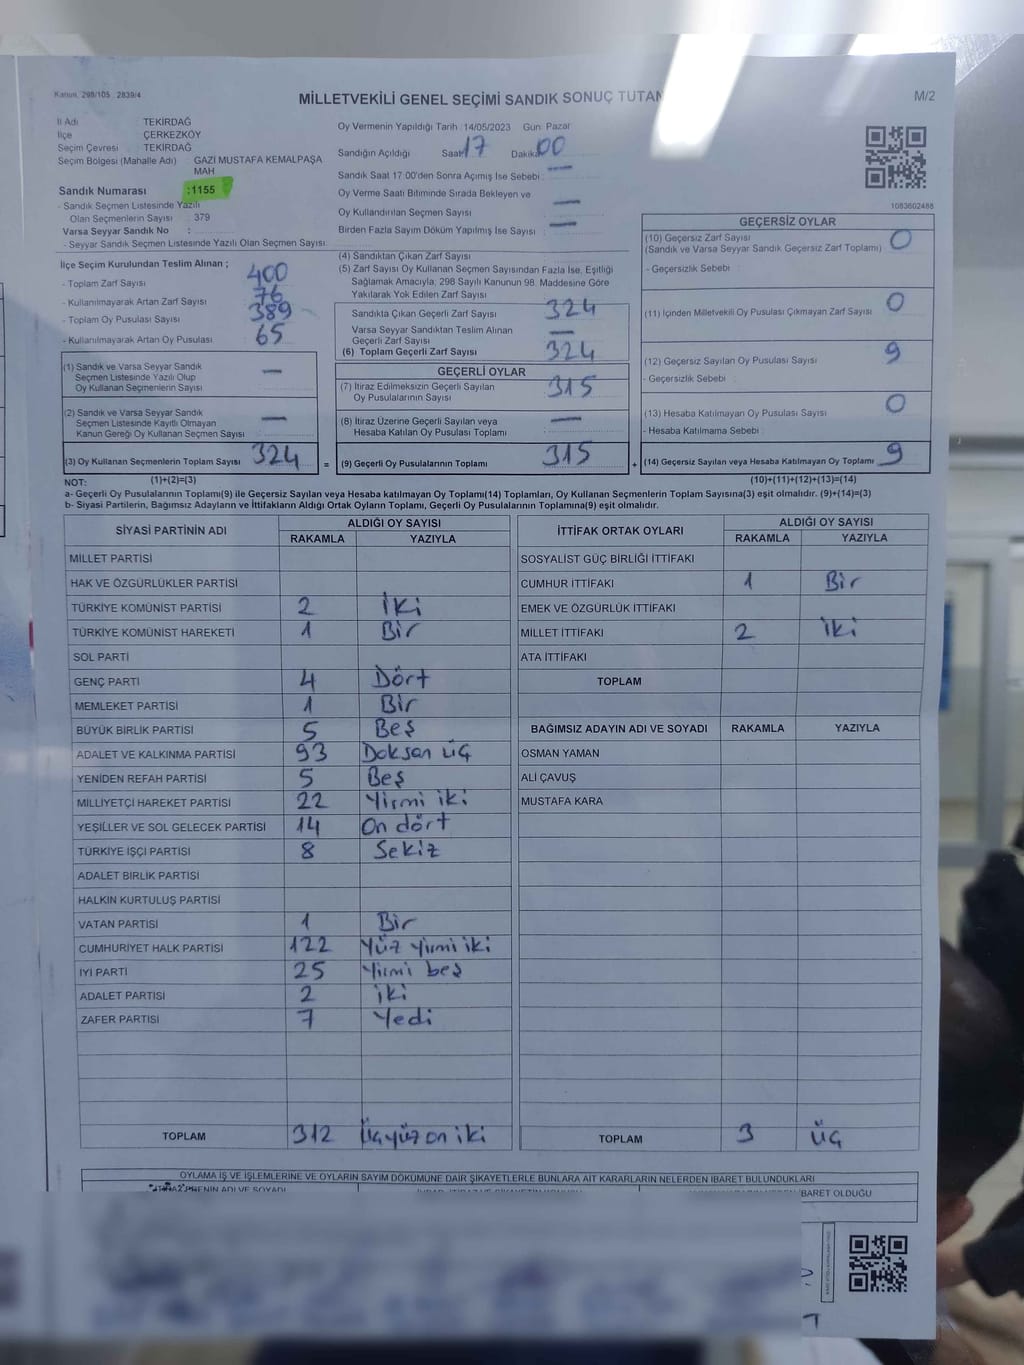 Kanun, 298/105 2839/4
MİLLETVEKİLİ GENEL SEÇİMİ SANDIK SONUÇ TUTAN
M/2
İl Adı TEKİRDAĞ
İlçe ÇERKEZKÖY
Seçim Çevresi TEKİRDAĞ
Seçim Bölgesi (Mahalle Adı) GAZİ MUSTAFA KEMALPAŞA MAH
Sandık Numarası :1155
- Sandık Seçmen Listesinde Yazılı
Olan Seçmenlerin Sayısı : 379
Varsa Seyyar Sandık No :
- Seyyar Sandık Seçmen Listesinde Yazılı Olan Seçmen Sayısı:
Oy Vermenin Yapıldığı Tarih :14/05/2023 Gün: Pazar
Sandığın Açıldığı Saat 17 Dakika 00
Sandık Saat 17:00'den Sonra Açımış İse Sebebi : —
Oy Verme Saati Bitiminde Sırada Bekleyen ve
Oy Kullandırılan Seçmen Sayısı —
Birden Fazla Sayım Döküm Yapılmış İse Sayısı : —
1083602488
İlçe Seçim Kurulundan Teslim Alınan ;
- Toplam Zarf Sayısı 400
- Kullanılmayarak Artan Zarf Sayısı 76
- Toplam Oy Pusulası Sayısı 389
- Kullanılmayarak Artan Oy Pusulası 65
(1) Sandık ve Varsa Seyyar Sandık
Seçmen Listesinde Yazılı Olup
Oy Kullanan Seçmenlerin Sayısı —
(2) Sandık ve Varsa Seyyar Sandık
Seçmen Listesinde Kayıtlı Olmayan
Kanun Gereği Oy Kullanan Seçmen Sayısı —
(3) Oy Kullanan Seçmenlerin Toplam Sayısı 324
(4) Sandıktan Çıkan Zarf Sayısı
(5) Zarf Sayısı Oy Kullanan Seçmen Sayısından Fazla İse, Eşitliği
Sağlamak Amacıyla, 298 Sayılı Kanunun 98. Maddesine Göre
Yakılarak Yok Edilen Zarf Sayısı
Sandıkta Çıkan Geçerli Zarf Sayısı 324
Varsa Seyyar Sandıktan Teslim Alınan
Geçerli Zarf Sayısı —
(6) Toplam Geçerli Zarf Sayısı 324
GEÇERLİ OYLAR
(7) İtiraz Edilmeksizin Geçerli Sayılan
Oy Pusulalarının Sayısı 315
(8) İtiraz Üzerine Geçerli Sayılan veya
Hesaba Katılan Oy Pusulası Toplamı —
= (9) Geçerli Oy Pusulalarının Toplamı 315
GEÇERSİZ OYLAR
(10) Geçersiz Zarf Sayısı
(Sandık ve Varsa Seyyar Sandık Geçersiz Zarf Toplamı) 0
- Geçersizlik Sebebi :
(11) İçinden Milletvekili Oy Pusulası Çıkmayan Zarf Sayısı 0
(12) Geçersiz Sayılan Oy Pusulası Sayısı 9
- Geçersizlik Sebebi :
(13) Hesaba Katılmayan Oy Pusulası Sayısı 0
- Hesaba Katılmama Sebebi :
+ (14) Geçersiz Sayılan veya Hesaba Katılmayan Oy Toplamı 9
NOT: (1)+(2)=(3) (10)+(11)+(12)+(13)=(14)
a- Geçerli Oy Pusulalarının Toplamı(9) ile Geçersiz Sayılan veya Hesaba katılmayan Oy Toplamı(14) Toplamları, Oy Kullanan Seçmenlerin Toplam Sayısına(3) eşit olmalıdır. (9)+(14)=(3)
b- Siyasi Partilerin, Bağımsız Adayların ve İttifakların Aldığı Ortak Oyların Toplamı, Geçerli Oy Pusulalarının Toplamına(9) eşit olmalıdır.
SİYASİ PARTİNİN ADI ALDIĞI OY SAYISI
RAKAMLA YAZIYLA
MİLLET PARTİSİ
HAK VE ÖZGÜRLÜKLER PARTİSİ
TÜRKİYE KOMÜNİST PARTİSİ 2 İki
TÜRKİYE KOMÜNİST HAREKETİ 1 Bir
SOL PARTİ
GENÇ PARTİ 4 Dört
MEMLEKET PARTİSİ 1 Bir
BÜYÜK BİRLİK PARTİSİ 5 Beş
ADALET VE KALKINMA PARTİSİ 93 Doksan üç
YENİDEN REFAH PARTİSİ 5 Beş
MİLLİYETÇİ HAREKET PARTİSİ 22 Yirmi iki
YEŞİLLER VE SOL GELECEK PARTİSİ 14 On dört
TÜRKİYE İŞÇİ PARTİSİ 8 Sekiz
ADALET BİRLİK PARTİSİ
HALKIN KURTULUŞ PARTİSİ
VATAN PARTİSİ 1 Bir
CUMHURİYET HALK PARTİSİ 122 Yüz yirmi iki
İYİ PARTİ 25 Yirmi beş
ADALET PARTİSİ 2 iki
ZAFER PARTİSİ 7 Yedi
TOPLAM 312 Üçyüz on iki
İTTİFAK ORTAK OYLARI ALDIĞI OY SAYISI
RAKAMLA YAZIYLA
SOSYALİST GÜÇ BİRLİĞİ İTTİFAKI
CUMHUR İTTİFAKI 1 Bir
EMEK VE ÖZGÜRLÜK İTTİFAKI
MİLLET İTTİFAKI 2 iki
ATA İTTİFAKI
TOPLAM
BAĞIMSIZ ADAYIN ADI VE SOYADI RAKAMLA YAZIYLA
OSMAN YAMAN
ALİ ÇAVUŞ
MUSTAFA KARA
TOPLAM 3 üç
OYLAMA İŞ VE İŞLEMLERİNE VE OYLARIN SAYIM DÖKÜMÜNE DAİR ŞİKAYETLERLE BUNLARA AİT KARARLARIN NELERDEN İBARET BULUNDUKLARI
İBARET OLDUĞU